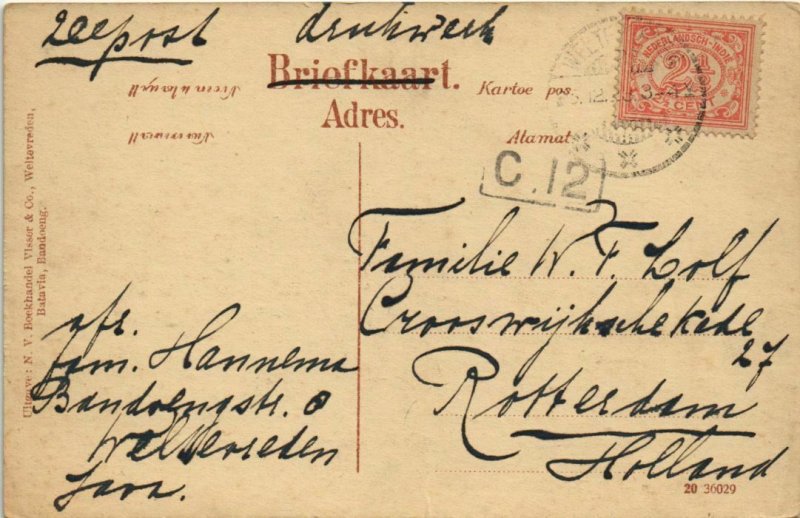 Zeepost drukwerk
Briefkaart.
Adres.
Kartoe pos
Alamat
NEDERLANDSCH-INDIË
2½
CENT
C.12
Uitgave: N. V. Boekhandel Visser & Co., Weltevreden,
Batavia, Bandoeng.
Familie W. F. Lolf
Crooswijkschekade
27
Rotterdam
Holland
afz.
fam. Hannema
Bandoengstr. 8
Weltevreden
Java.
20 36029